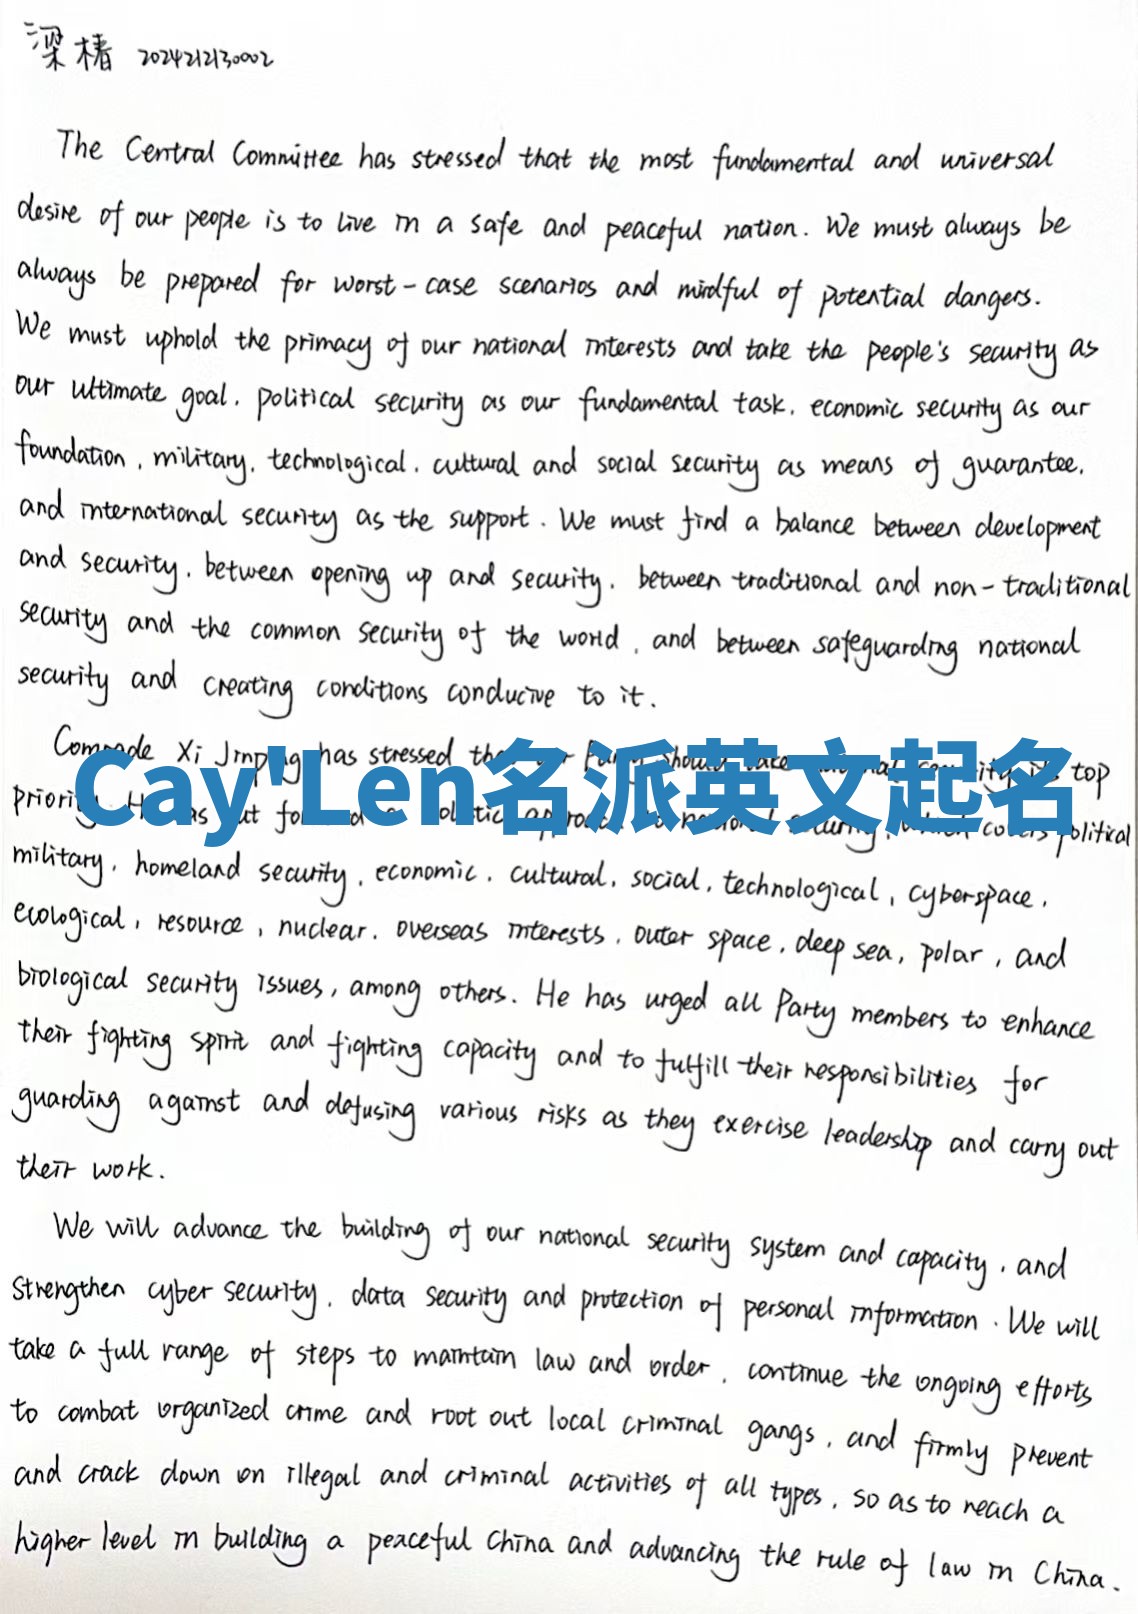 梁椿 2024212130002
The Central Committee has stressed that the most fundamental and universal
desire of our people is to live in a safe and peaceful nation. We must always be
always be prepared for worst-case scenarios and mindful of potential dangers.
We must uphold the primacy of our national interests and take the people's security as
our ultimate goal, political security as our fundamental task, economic security as our
foundation, military, technological, cultural and social security as means of guarantee,
and international security as the support. We must find a balance between development
and security, between opening up and security, between traditional and non-traditional
security and the common security of the world, and between safeguarding national
security and creating conditions conducive to it.
Comrade Xi Jinping has stressed top
Cay'Len名派英文起名
political
military, homeland security, economic, cultural, social, technological, cyberspace,
ecological, resource, nuclear, overseas interests, outer space, deep sea, polar, and
biological security issues, among others. He has urged all Party members to enhance
their fighting spirit and fighting capacity and to fulfill their responsibilities for
guarding against and defusing various risks as they exercise leadership and carry out
their work.
We will advance the building of our national security system and capacity, and
strengthen cyber security, data security and protection of personal information. We will
take a full range of steps to maintain law and order, continue the ongoing efforts
to combat organized crime and root out local criminal gangs, and firmly prevent
and crack down on illegal and criminal activities of all types, so as to reach a
higher level in building a peaceful China and advancing the rule of law in China.